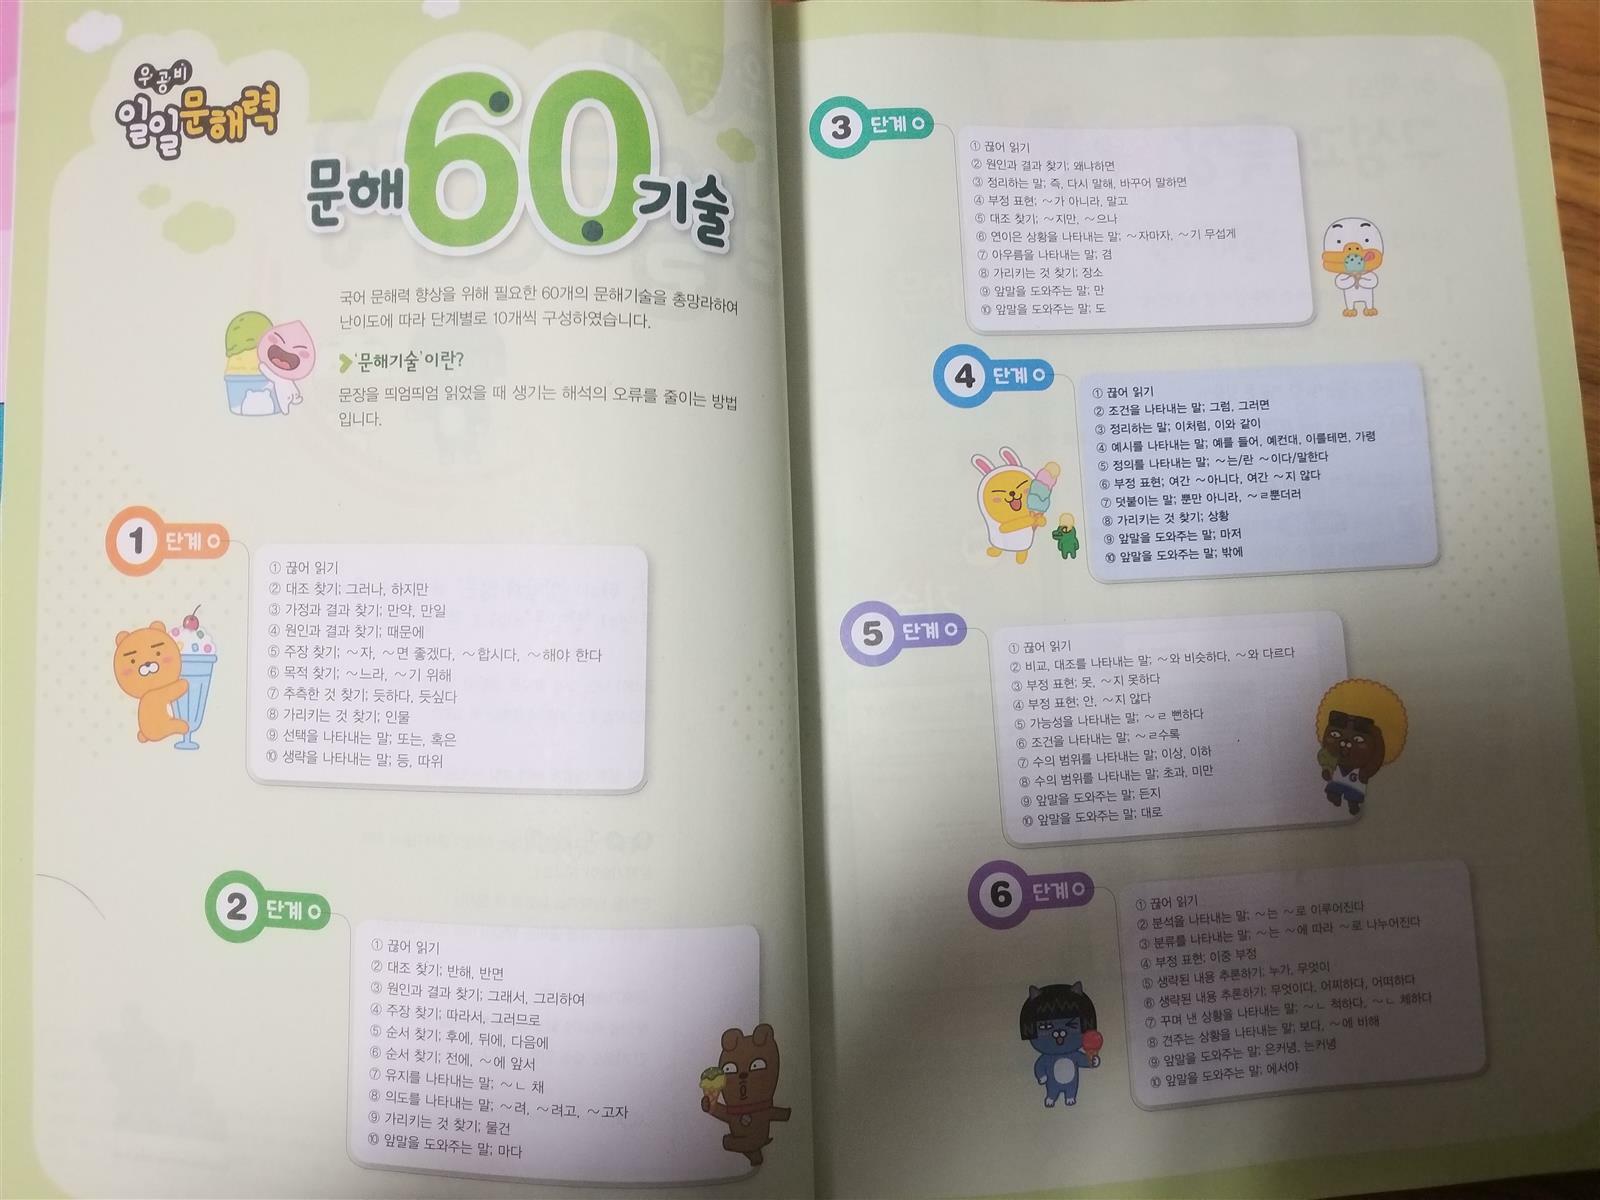 우공비
일일문해력
문해60기술
국어 문해력 향상을 위해 필요한 60개의 문해기술을 총망라하여
난이도에 따라 단계별로 10개씩 구성하였습니다.
'문해기술'이란?
문장을 띄엄띄엄 읽었을 때 생기는 해석의 오류를 줄이는 방법
입니다.
1 단계
① 끊어 읽기
② 대조 찾기; 그러나, 하지만
③ 가정과 결과 찾기; 만약, 만일
④ 원인과 결과 찾기; 때문에
⑤ 주장 찾기; ~자, ~면 좋겠다, ~합시다, ~해야 한다
⑥ 목적 찾기; ~느라, ~기 위해
⑦ 추측한 것 찾기; 듯하다, 듯싶다
⑧ 가리키는 것 찾기; 인물
⑨ 선택을 나타내는 말; 또는, 혹은
⑩ 생략을 나타내는 말; 등, 따위
2 단계
① 끊어 읽기
② 대조 찾기; 반해, 반면
③ 원인과 결과 찾기; 그래서, 그리하여
④ 주장 찾기; 따라서, 그러므로
⑤ 순서 찾기; 후에, 뒤에, 다음에
⑥ 순서 찾기; 전에, ~에 앞서
⑦ 유지를 나타내는 말; ~ㄴ 채
⑧ 의도를 나타내는 말; ~려, ~려고, ~고자
⑨ 가리키는 것 찾기; 물건
⑩ 앞말을 도와주는 말; 마다
3 단계
① 끊어 읽기
② 원인과 결과 찾기; 왜냐하면
③ 정리하는 말; 즉, 다시 말해, 바꾸어 말하면
④ 부정 표현; ~가 아니라, 말고
⑤ 대조 찾기; ~지만, ~으나
⑥ 연이은 상황을 나타내는 말; ~자마자, ~기 무섭게
⑦ 아우름을 나타내는 말; 겸
⑧ 가리키는 것 찾기; 장소
⑨ 앞말을 도와주는 말; 만
⑩ 앞말을 도와주는 말; 도
4 단계
① 끊어 읽기
② 조건을 나타내는 말; 그럼, 그러면
③ 정리하는 말; 이처럼, 이와 같이
④ 예시를 나타내는 말; 예를 들어, 예컨대, 이를테면, 가령
⑤ 정의를 나타내는 말; ~는/란 ~이다/말한다
⑥ 부정 표현; 여간 ~아니다, 여간 ~지 않다
⑦ 덧붙이는 말; 뿐만 아니라, ~ㄹ뿐더러
⑧ 가리키는 것 찾기; 상황
⑨ 앞말을 도와주는 말; 마저
⑩ 앞말을 도와주는 말; 밖에
5 단계
① 끊어 읽기
② 비교, 대조를 나타내는 말; ~와 비슷하다, ~와 다르다
③ 부정 표현; 못, ~지 못하다
④ 부정 표현; 안, ~지 않다
⑤ 가능성을 나타내는 말; ~ㄹ 뻔하다
⑥ 조건을 나타내는 말; ~ㄹ수록
⑦ 수의 범위를 나타내는 말; 이상, 이하
⑧ 수의 범위를 나타내는 말; 초과, 미만
⑨ 앞말을 도와주는 말; 든지
⑩ 앞말을 도와주는 말; 대로
6 단계
① 끊어 읽기
② 분석을 나타내는 말; ~는 ~로 이루어진다
③ 분류를 나타내는 말; ~는 ~에 따라 ~로 나누어진다
④ 부정 표현; 이중 부정
⑤ 생략된 내용 추론하기; 누가, 무엇이
⑥ 생략된 내용 추론하기; 무엇이다, 어찌하다, 어떠하다
⑦ 꾸며 낸 상황을 나타내는 말; ~ㄴ 척하다, ~ㄴ 체하다
⑧ 견주는 상황을 나타내는 말; 보다, ~에 비해
⑨ 앞말을 도와주는 말; 은커녕, 는커녕
⑩ 앞말을 도와주는 말; 에서야